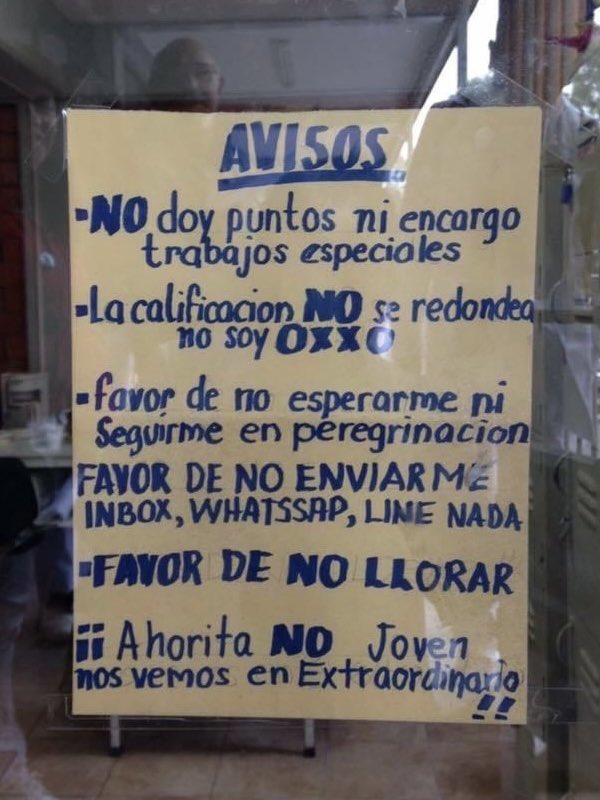 AVISOS
▪NO doy puntos ni encargo
trabajos especiales
▪La calificacion NO se redondea
no soy OXXO
▪favor de no esperarme ni
Seguirme en peregrinacion
FAVOR DE NO ENVIARME
INBOX, WHATSSAP, LINE NADA
▪FAVOR DE NO LLORAR
¡¡ Ahorita NO Joven
nos vemos en Extraordinario
!!